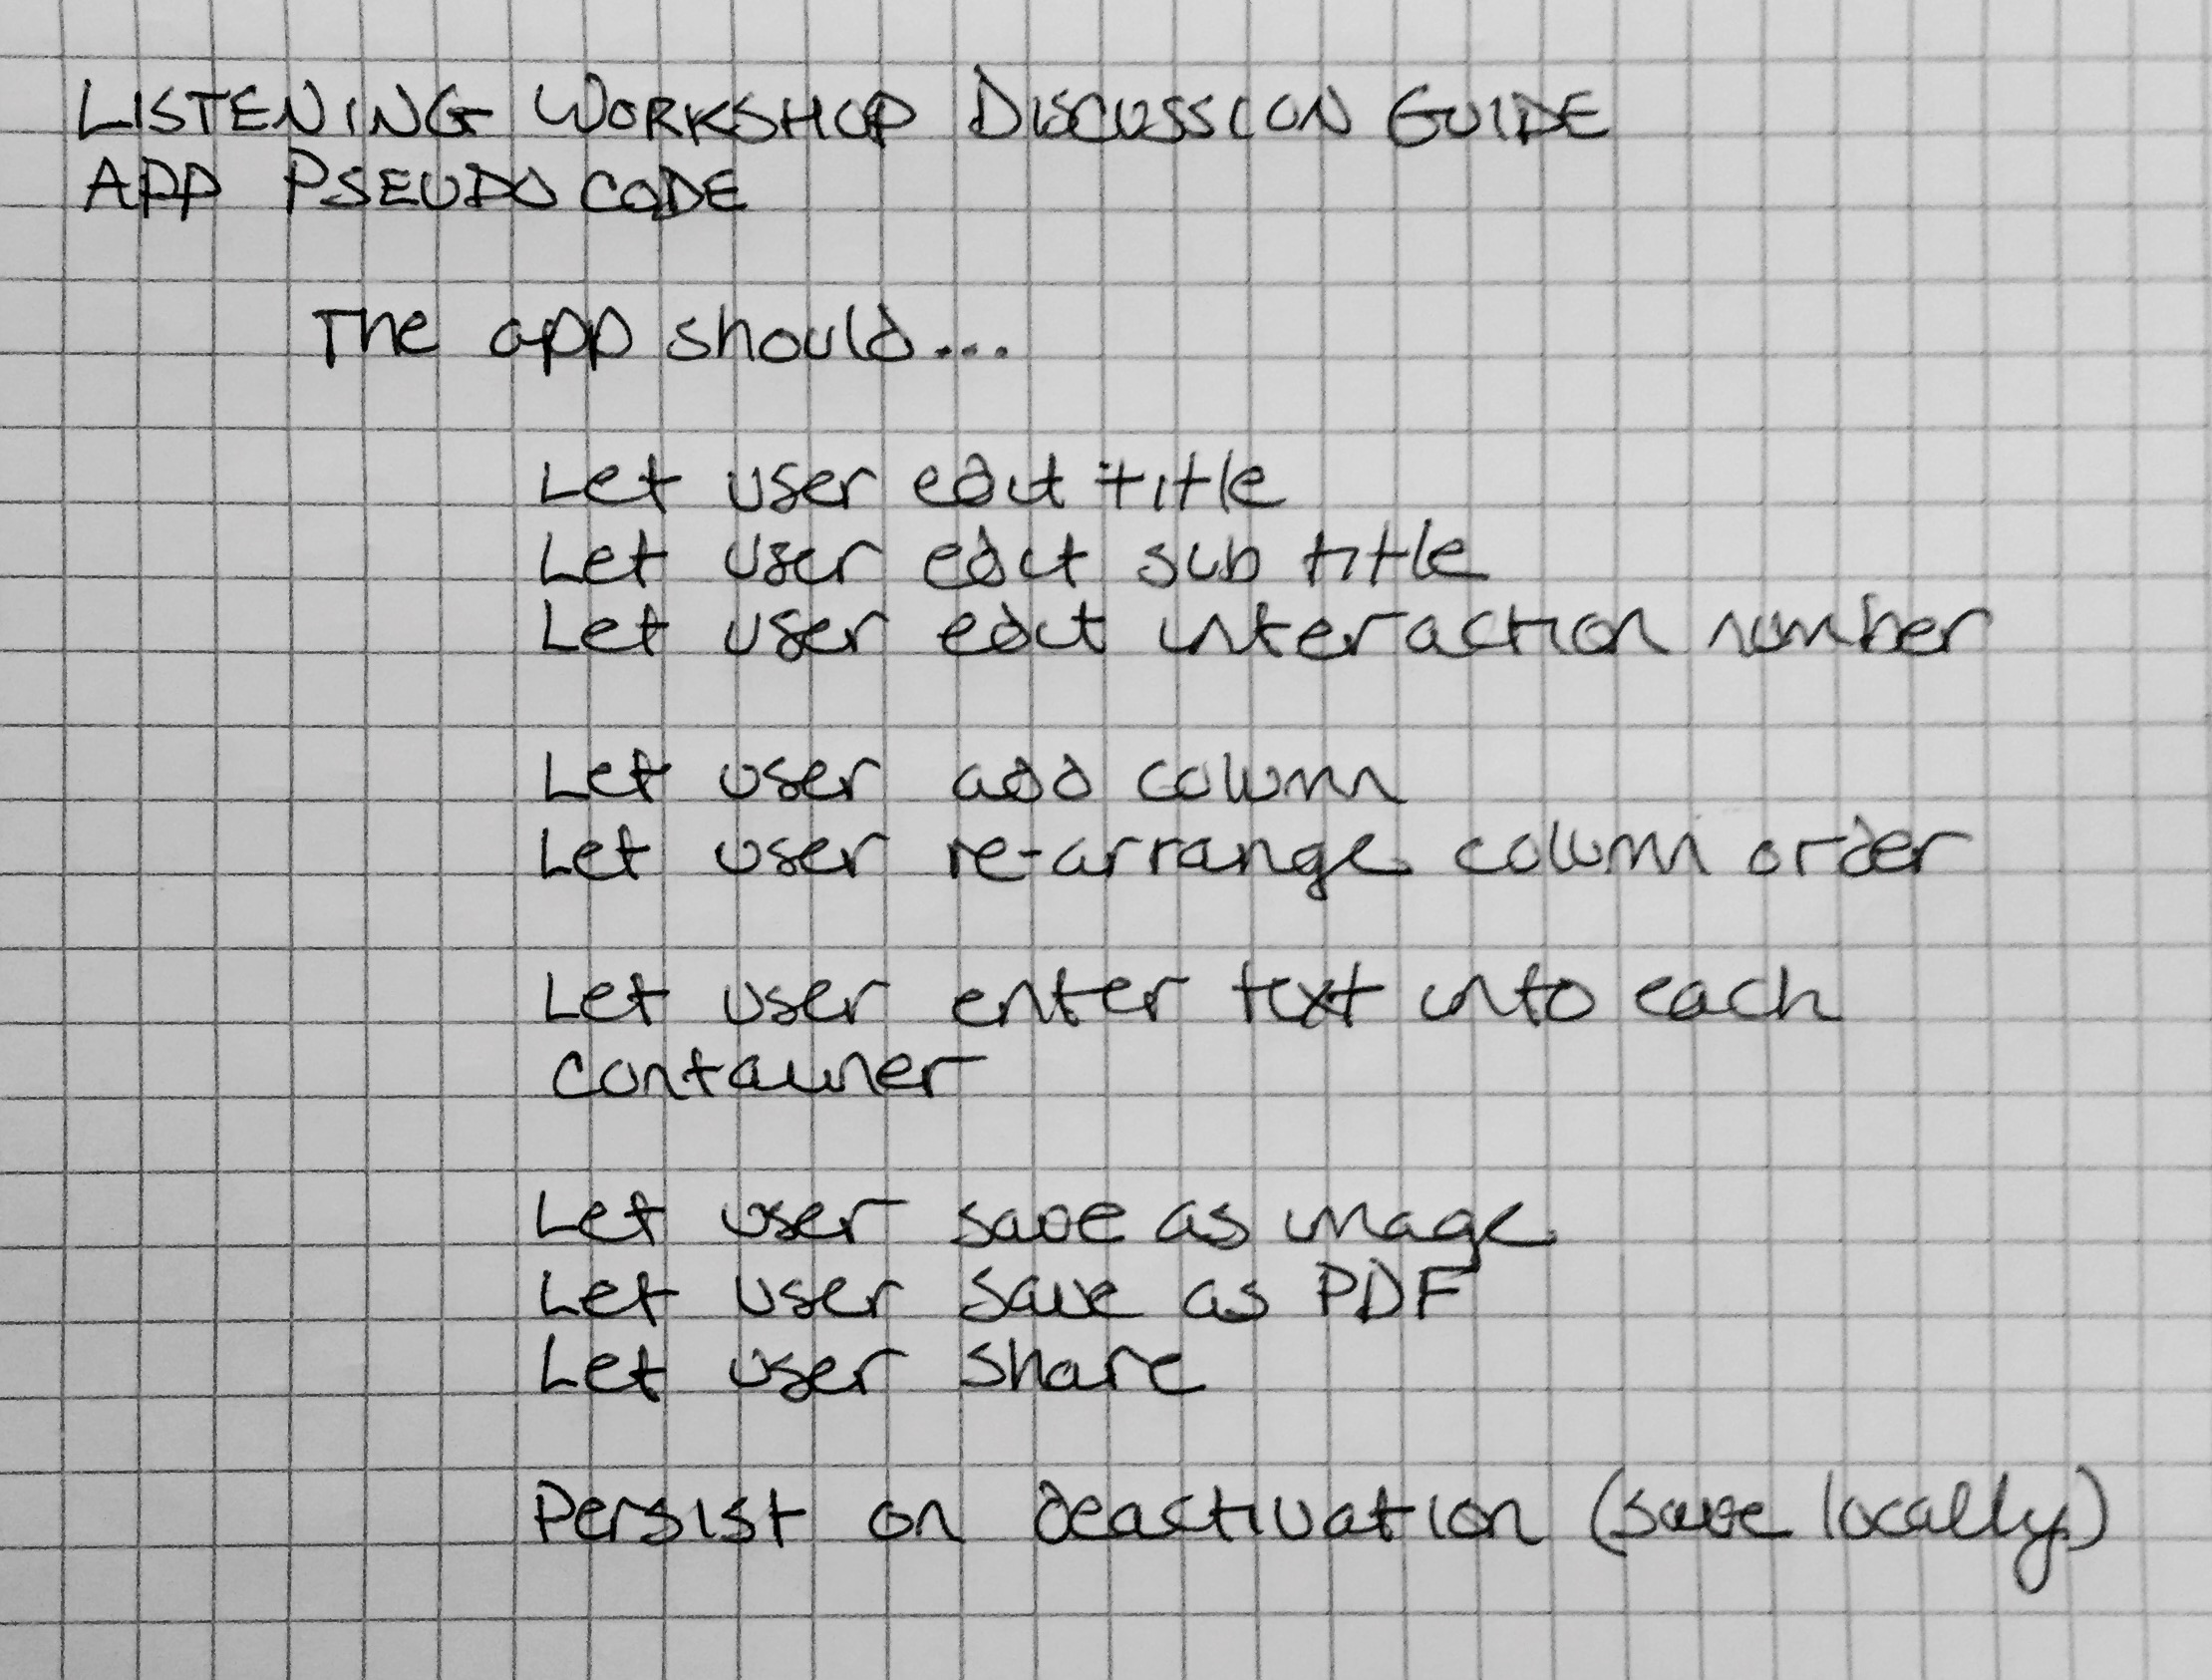 LISTENING WORKSHOP DISCUSSION GUIDE
APP PSEUDO CODE
The app should...
Let user edit title
Let user edit sub title
Let user edit interaction number
Let user add column
Let user re-arrange column order
Let user enter text into each
container
Let user save as image
Let user save as PDF
Let user share
Persist on deactivation (save locally)